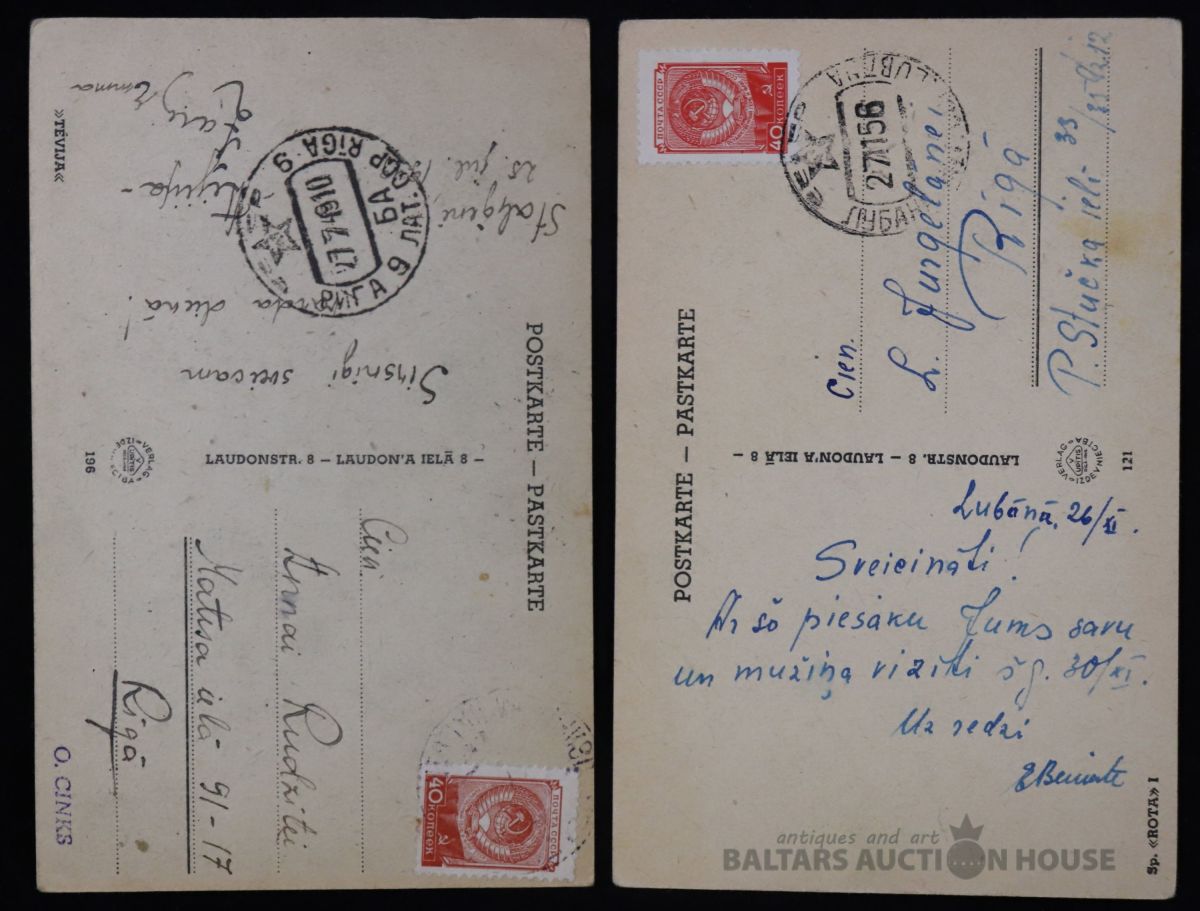 «TĒVIJA»
Staļģenē,
28. jūl.
Sirsnīgi sveicam
vārda dienā!
Emma
РИГА 9 ЛАТ. ССР RĪGA 9
27 7 49 10
POSTKARTE – PASTKARTE
LAUDONSTR. 8 – LAUDON'A IELĀ 8 –
VERLAG
IZDEVNIECĪBA
196
Cien.
Annai Rudzītei
Matīsa ielā 91-17
Rīgā
O. CINKS
ПОЧТА СССР
40 КОПЕЕК
ПОЧТА СССР
40 КОПЕЕК
LUBĀNA
27 11 56
ЛУБАНА
POSTKARTE – PASTKARTE
LAUDONSTR. 8 – LAUDON'A IELĀ 8 –
VERLAG
IZDEVNIECĪBA
121
Cien.
L. Jurgelānei
Rīgā
P. Stučka ielā 33/35 12
Lubānā, 26/XI.
Sveicināti!
Ar šo piesaku Jums savu
un mužiņa vizīti š.g. 30/XI.
Uz redzi
Sp. «ROTA» I
antiques and art
BALTARS AUCTION HOUSE